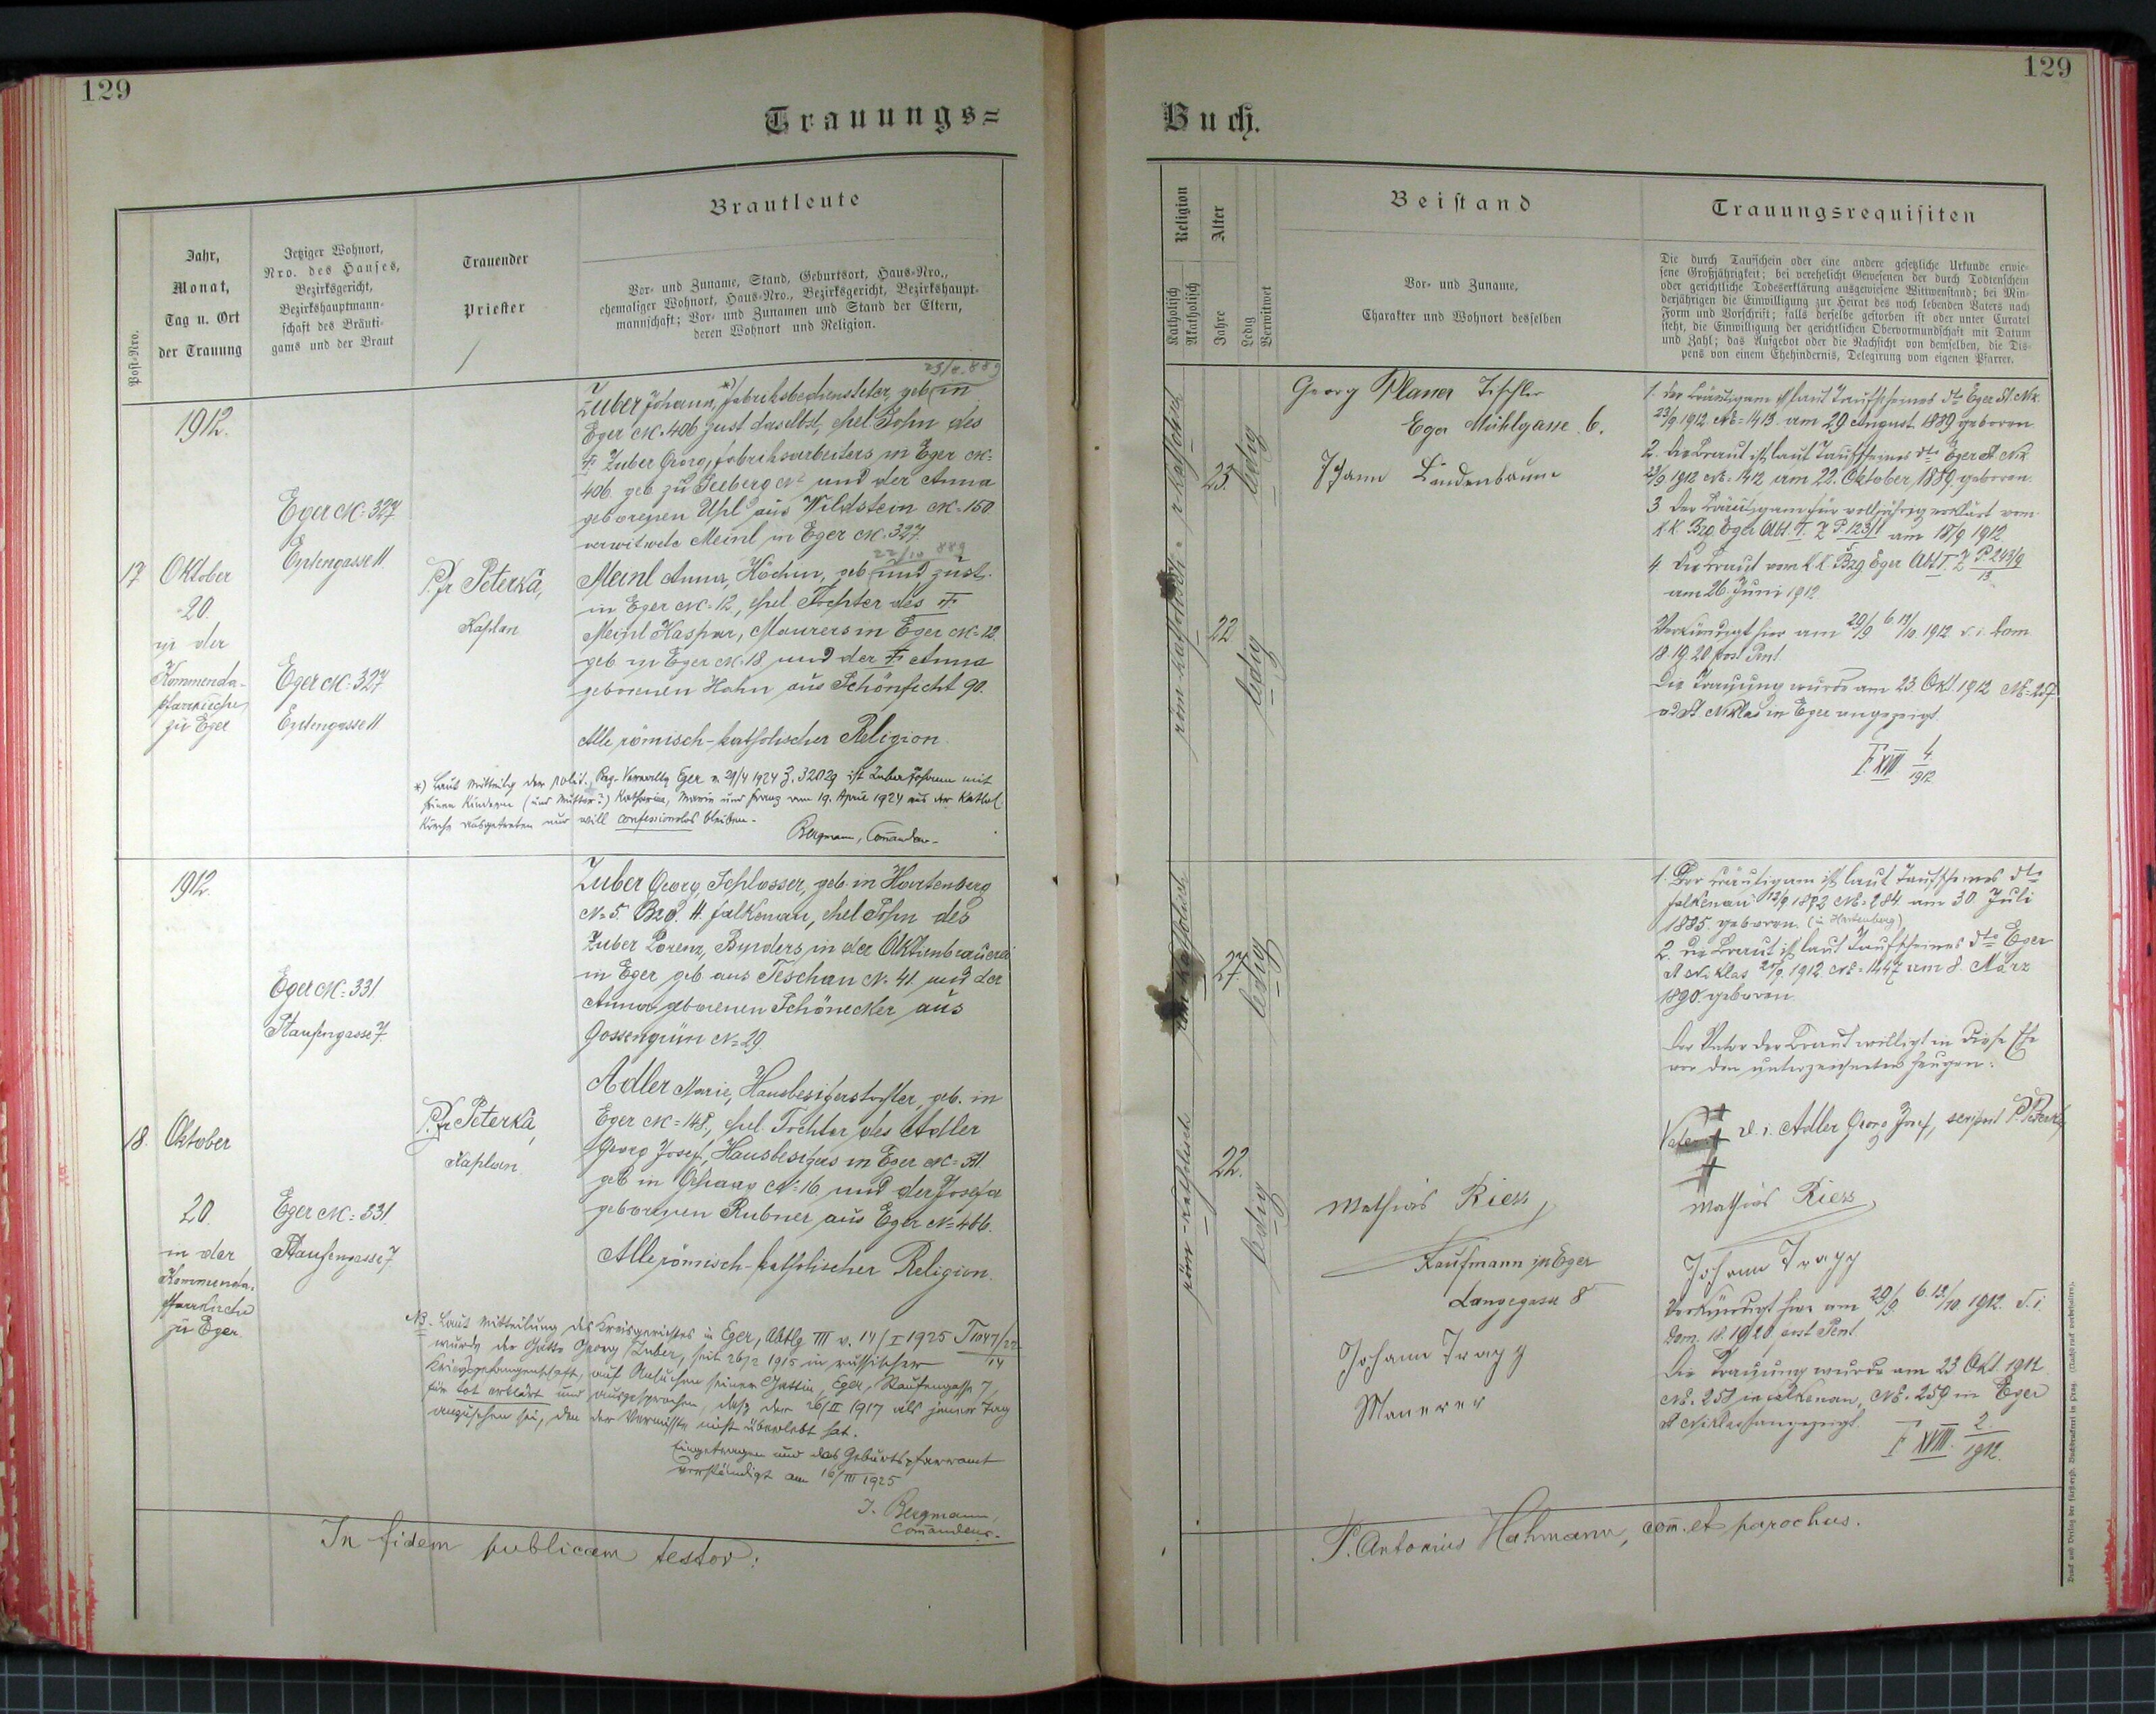 129
Trauungs=
Post=Nro.
Jahr,
Monat,
Tag u. Ort
der Trauung
Jetziger Wohnort,
Nro. des Hauses,
Bezirksgericht,
Bezirkshauptmann-
schaft des Bräuti-
gams und der Braut
Trauender
Priester
Brautleute
Vor- und Zuname, Stand, Geburtsort, Haus-Nro.,
ehemaliger Wohnort, Haus-Nro., Bezirksgericht, Bezirkshaupt-
mannschaft; Vor- und Zunamen und Stand der Eltern,
deren Wohnort und Religion.
1912.
17 Oktober
20.
in der
Kommenda-
pfarrkirche
zu Eger
Eger N= 327
11
Eger N= 327
11
P. Fr Peterka,
Kaplan
23/8. 889
Zuber Johann, *) Fabriksbediensteter, geb. in
Eger N= 406 zust. daselbst, ehel. Sohn des
Zuber Georg, Fabriksarbeiters in Eger N=
406. geb zu Seeberg N= und der Anna
geborenen Uhl aus Wildstein N= 150
verwitwete Meinl in Eger N= 327.
22/10 889
Meinl Anna, Köchin, geb und zust.
in Eger N= 12, ehel. Tochter des
Meinl Kaspar, Maurers in Eger N= 12.
geb in Eger N= 18 und der Anna
geborenen Hahn aus Schönficht 90.
Alle römisch-katholischer Religion.
*) Laut Mitteilg der polit. Bez. Verwaltg Eger v. 29/4 1924 Z. 32029 ist Zuber Johann mit
seinen Kindern (und Mutter?) Katharina, Maria und Franz am 19. April 1924 aus der Kathol.
Kirche ausgetreten und will confessionslos bleiben.
Bergmann, Commandeur
1912.
18. Oktober
20.
in der
Kommenda-
pfarrkirche
zu Eger
Eger N= 331
Staufengasse 7
Eger N= 331.
Staufengasse 7
P. Fr Peterka,
Kaplan
Zuber Georg, Schlosser, geb. in Hartenberg
N= 5. Bzg. H. Falkenau, ehel Sohn des
Zuber Lorenz, Binders in der Aktienbrauerei
in Eger geb. aus Teschau N. 41. und der
Anna geborenen Schönecker aus
Gossengrün N= 29.
Adler Marie, Hausbesitzerstochter, geb. in
Eger N= 148, ehel. Tochter des Adler
Georg Josef, Hausbesitzers in Eger N= 331.
geb in Gehaag N= 16 und der Josefa
geborenen Rubner aus Eger N= 466.
Alle römisch-katholischer Religion.
NB. Laut Mitteilung des Kreisgerichtes in Eger, Abtlg III v. 14/I 1925 T 1047/22
14
wurde der Gatte Georg Zuber, seit 26/2 1915 in russischer
Kriegsgefangenschaft, auf Ansuchen seiner Gattin, Eger, Staufengasse 7,
für tot erklärt und ausgesprochen, dass der 26/II 1917 als jener Tag
anzusehen sei, den der Vermisste nicht überlebt hat.
Eingetragen und das Geburtspfarramt
verständigt am 16/III 1925
J. Bergmann,
Commandeur.
In fidem publicam testor:
129
Buch.
Religion
Katholisch
Akatholisch
Alter
Jahre
Ledig
Verwitwet
Beistand
Vor- und Zuname,
Charakter und Wohnort desselben
Trauungsrequisiten
Die durch Taufschein oder eine andere gesetzliche Urkunde erwie-
sene Großjährigkeit; bei verehelicht Gewesenen der durch Todtenschein
oder gerichtliche Todeserklärung ausgewiesene Wittwenstand; bei Min-
derjährigen die Einwilligung zur Heirat des noch lebenden Vaters nach
Form und Vorschrift; falls derselbe gestorben ist oder unter Curatel
steht, die Einwilligung der gerichtlichen Obervormundschaft mit Datum
und Zahl; das Aufgebot oder die Nachsicht von demselben, die Dis-
pens von einem Ehehindernis, Delegirung vom eigenen Pfarrer.
r. katholisch
23.
ledig
röm katholisch
22
ledig
Georg Planer Tischler
Eger Mühlgasse 6.
Johann Lindenbaum
1. Der Bräutigam ist laut Taufscheines dto Eger St. Nk.
23/9 1912 N= 1413. am 29 August 1889 geboren.
2. Die Braut ist laut Taufscheines dto Eger St. Nk
23/9 1912 N= 1412 am 22. Oktober 1889 geboren.
3. Der Bräutigam für volljährig erklärt vom
k.k. Bzg. Eger Abt. I. Z P. 123/1 am 18/9 1912.
4. Die Braut vom k.k. Bzg Eger Abt I. Z P 243/9
13
am 26. Juni 1912
Verkündigt hier am 29/9 6. 13/10. 1912 d. i. Dom
18. 19. 20 post Pent.
Die Trauung wurde am 23. Okt. 1912 N= 257
ad St. Niklas in Eger angezeigt.
F. XVIII 4
1912
röm katholisch
27.
ledig
röm-katholisch
22.
ledig
Mathias Riess
Kaufmann in Eger
Langegasse 8
Johann Trapp
Maurer
1. Der Bräutigam ist laut Taufscheines dto
Falkenau N= 284 am 30. Juli
1885. geboren. (in Hartenberg)
2. Die Braut ist laut Taufscheines dto Eger
St Niklas 1912. N= 1447 am 8. März
1890. geboren.
Der Vater der Braut willigt in diese Ehe
vor den unterzeichneten Zeugen:
Vater d. i. Adler Georg Josef, scripsit P. Peterka
Mathias Riess
Johann Trapp
Verkündigt hier am 29/9. 6. 13/10. 1912. d. i.
Dom. 18. 19. 20. post Pent.
Die Trauung wurde am 23 Okt. 1912
N= 258 in Falkenau, N= 259 in Eger
St Niklas angezeigt.
F XVIII. 2
1912.
P. Antonius Hahmann, com. et parochus.